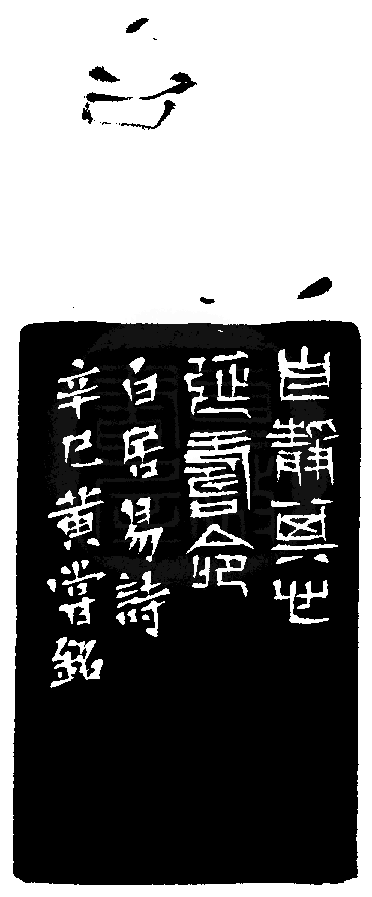 自靜其心
延壽命
白居易詩
辛巳黃嘗銘